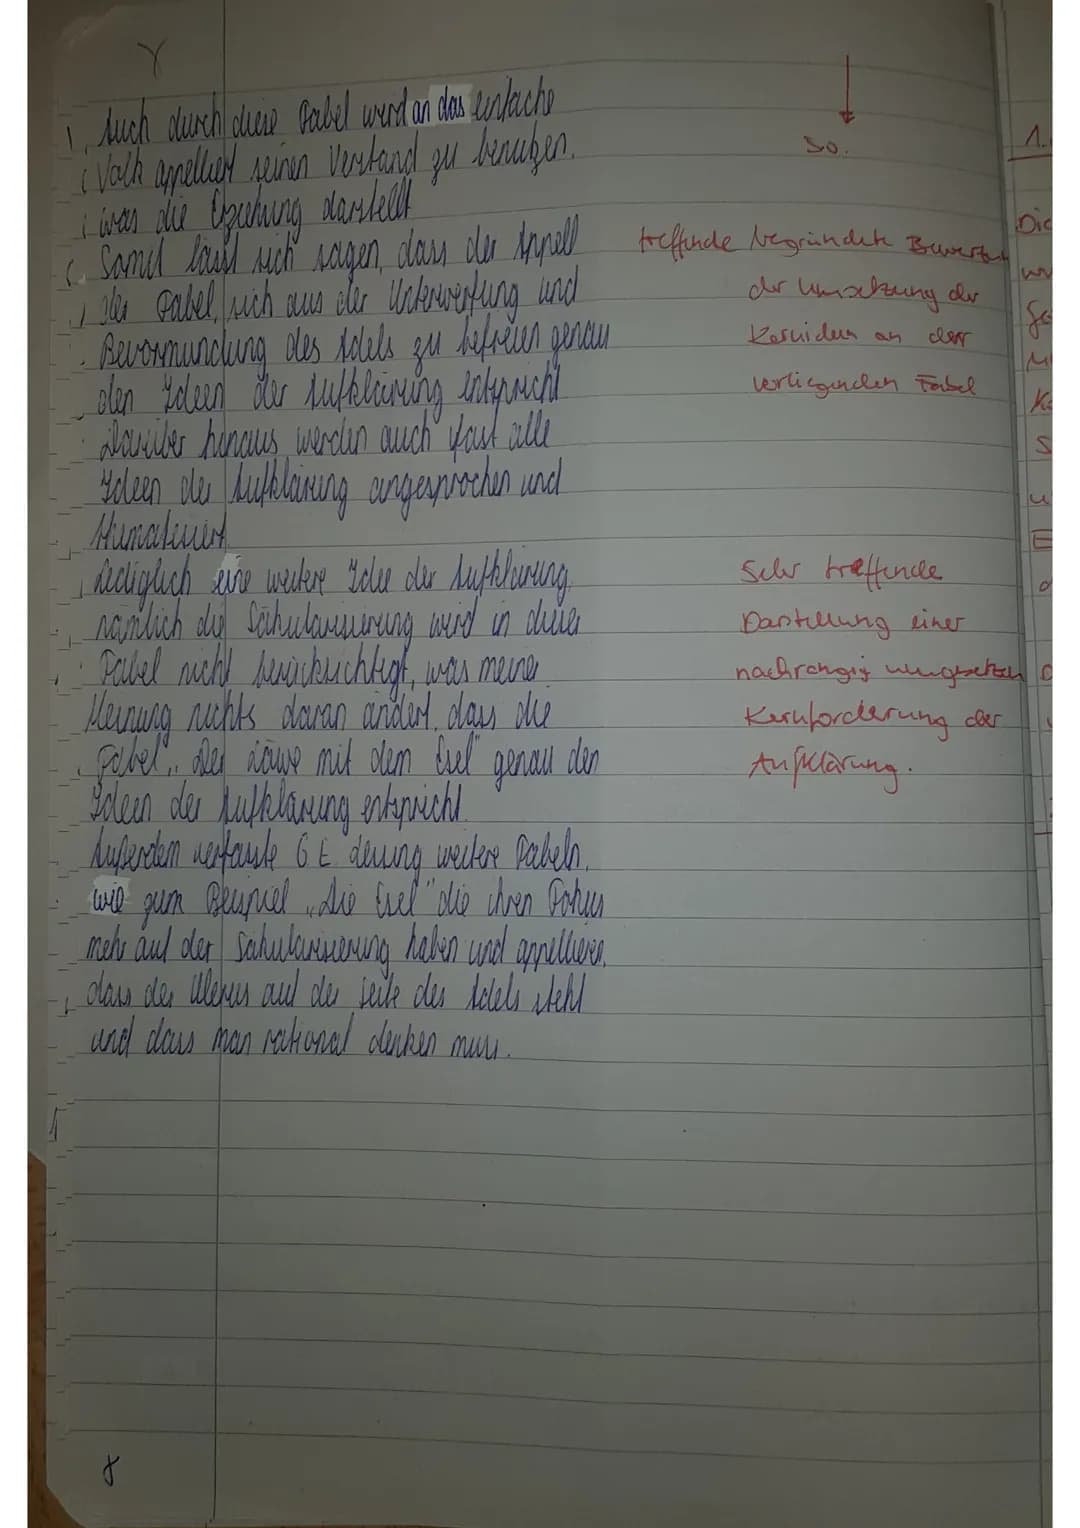 Auch durch diese Fabel wird an das einfache
Volk appelliert seinen Verstand zu benutzen.
was die Erziehung darstellt
Somit lässt sich sagen, dass der Appell
der Fabel, sich aus der Unterwerfung und
Bevormundung des Adels zu befreien genau
den Ideen der Aufklärung entspricht
Darüber hinaus werden auch fast alle
Ideen der Aufklärung angesprochen und
thematisiert
Lediglich eine weitere Idee der Aufklärung,
nämlich die Säkularisierung wird in dieser
Fabel nicht berücksichtigt, was meiner
Meinung nichts daran ändert, dass die
Fabel „Der Löwe mit dem Esel" genau den
Ideen der Aufklärung entspricht.
Außerdem verfasste G.E. Lessing weitere Fabeln,
wie zum Beispiel „Die Esel" die ihren Fokus
mehr auf der Säkularisierung haben und appellieren,
dass der Klerus auf der Seite des Adels steht
und dass man rational denken muss.
8
So.
treffende begründete
der Umsetzung der
Kernideen an der
vorliegenden Fabel
Sehr treffende
Darstellung einer
nachrangig umgesetzten
Kernforderung der
Aufklärung.
1.
Die